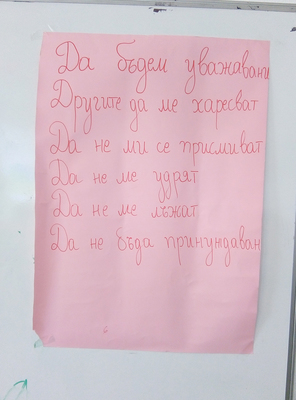 Да бъдем уважавани
Другите да ме харесват
Да не ми се присмиват
Да не ме удрят
Да не ме лъжат
Да не бъда принундаван